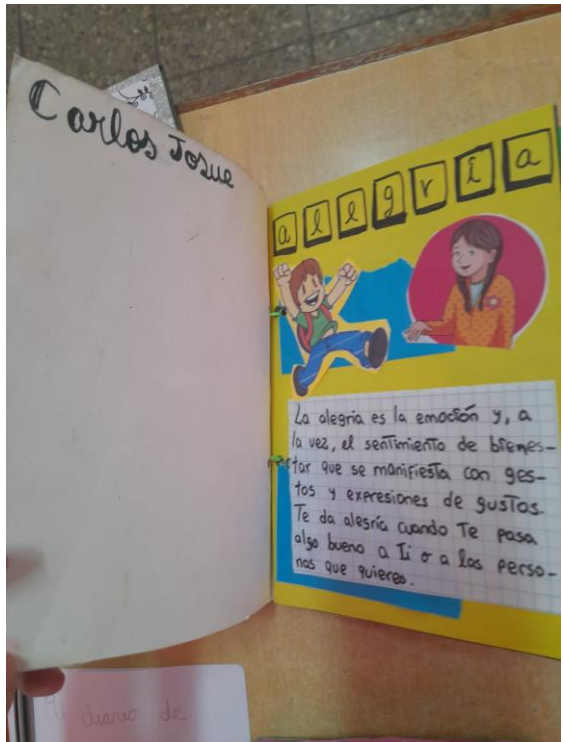 Carlos Josue
alegria
La alegria es la emoción y, a
la vez, el sentimiento de bienes-
tar que se manifiesta con ges-
tos y expresiones de gustos.
Te da alegría cuando Te pasa
algo bueno a Ti o a las perso-
nas que quieres.
Mi diario de